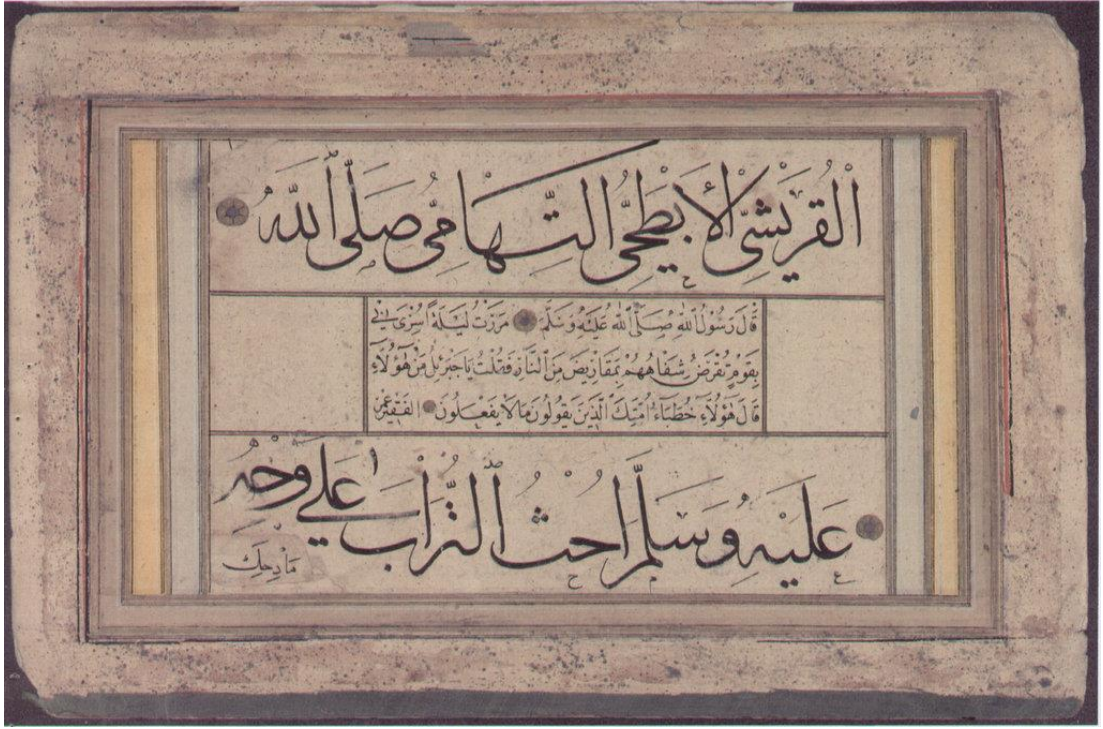 الْقُرَيْشِيِّ الْأَبْطَحِيِّ التِّهَامِيِّ صَلَّى اللّٰهُ
قَالَ رَسُولُ اللّٰهِ صَلَّى اللّٰهُ عَلَيْهِ وَسَلَّمَ مَرَرْتُ لَيْلَةَ اُسْرِيَ بِي
بِقَوْمٍ تُقْرَضُ شِفَاهُهُمْ بِمَقَارِيضَ مِنَ النَّارِ فَقُلْتُ يَا جَبْرَئِلُ مَنْ هٰؤُلَاءِ
قَالَ هٰؤُلَاءِ خُطَبَاءُ اُمَّتِكَ الَّذِينَ يَقُولُونَ مَا لَا يَفْعَلُونَ الفقير
عَلَيْهِ وَسَلَّمَ احْثُ التُّرَابَ عَلٰى وَجْهِ
مَادِحِكَ